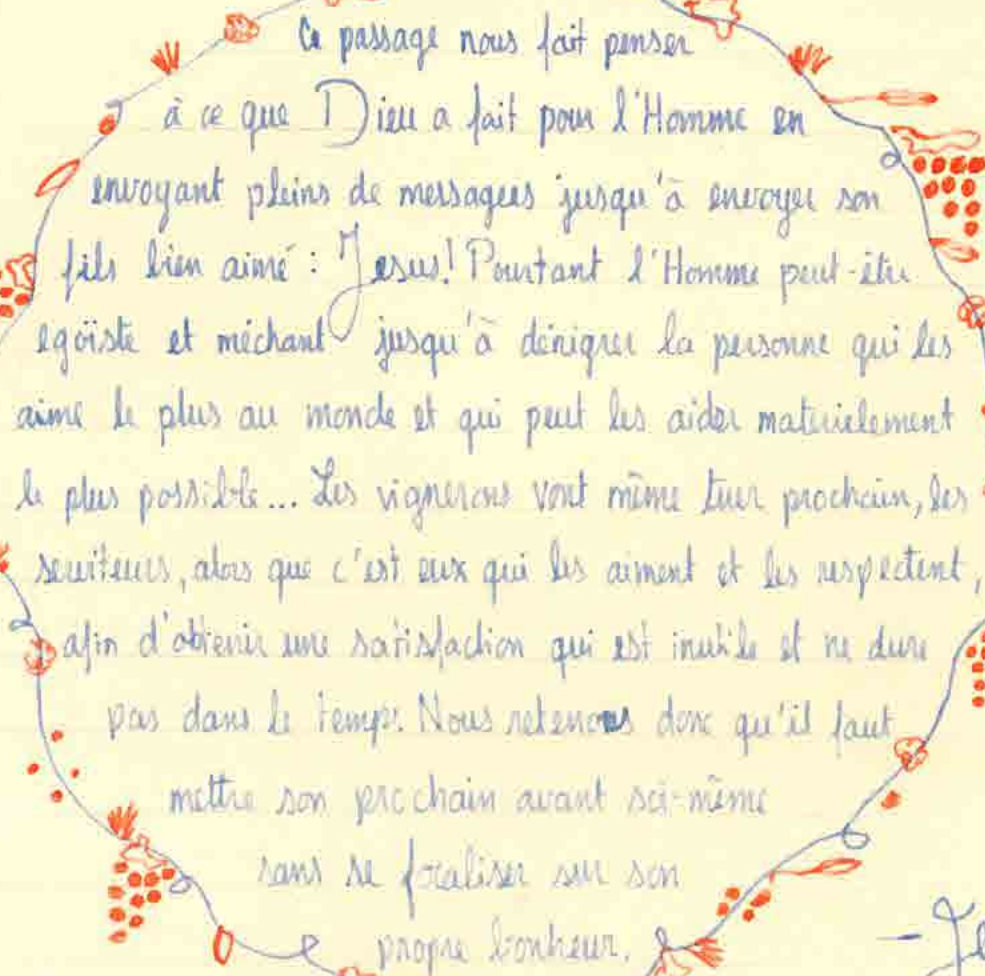 Ce passage nous fait penser
à ce que Dieu a fait pour l'Homme en
envoyant pleins de messagers jusqu'à envoyer son
fils bien aimé : Jesus! Pourtant l'Homme peut-être
egoïste et méchant jusqu'à dénigrer la personne qui les
aime le plus au monde et qui peut les aider materielement
le plus possible... Les vignerons vont même tuer prochain, les
serviteurs, alors que c'est eux qui les aiment et les respectent,
afin d'obtenir une satisfaction qui est inutile et ne dure
pas dans le temps. Nous retenons donc qu'il faut
mettre son prochain avant soi-même
sans se focaliser sur son
propre bonheur.